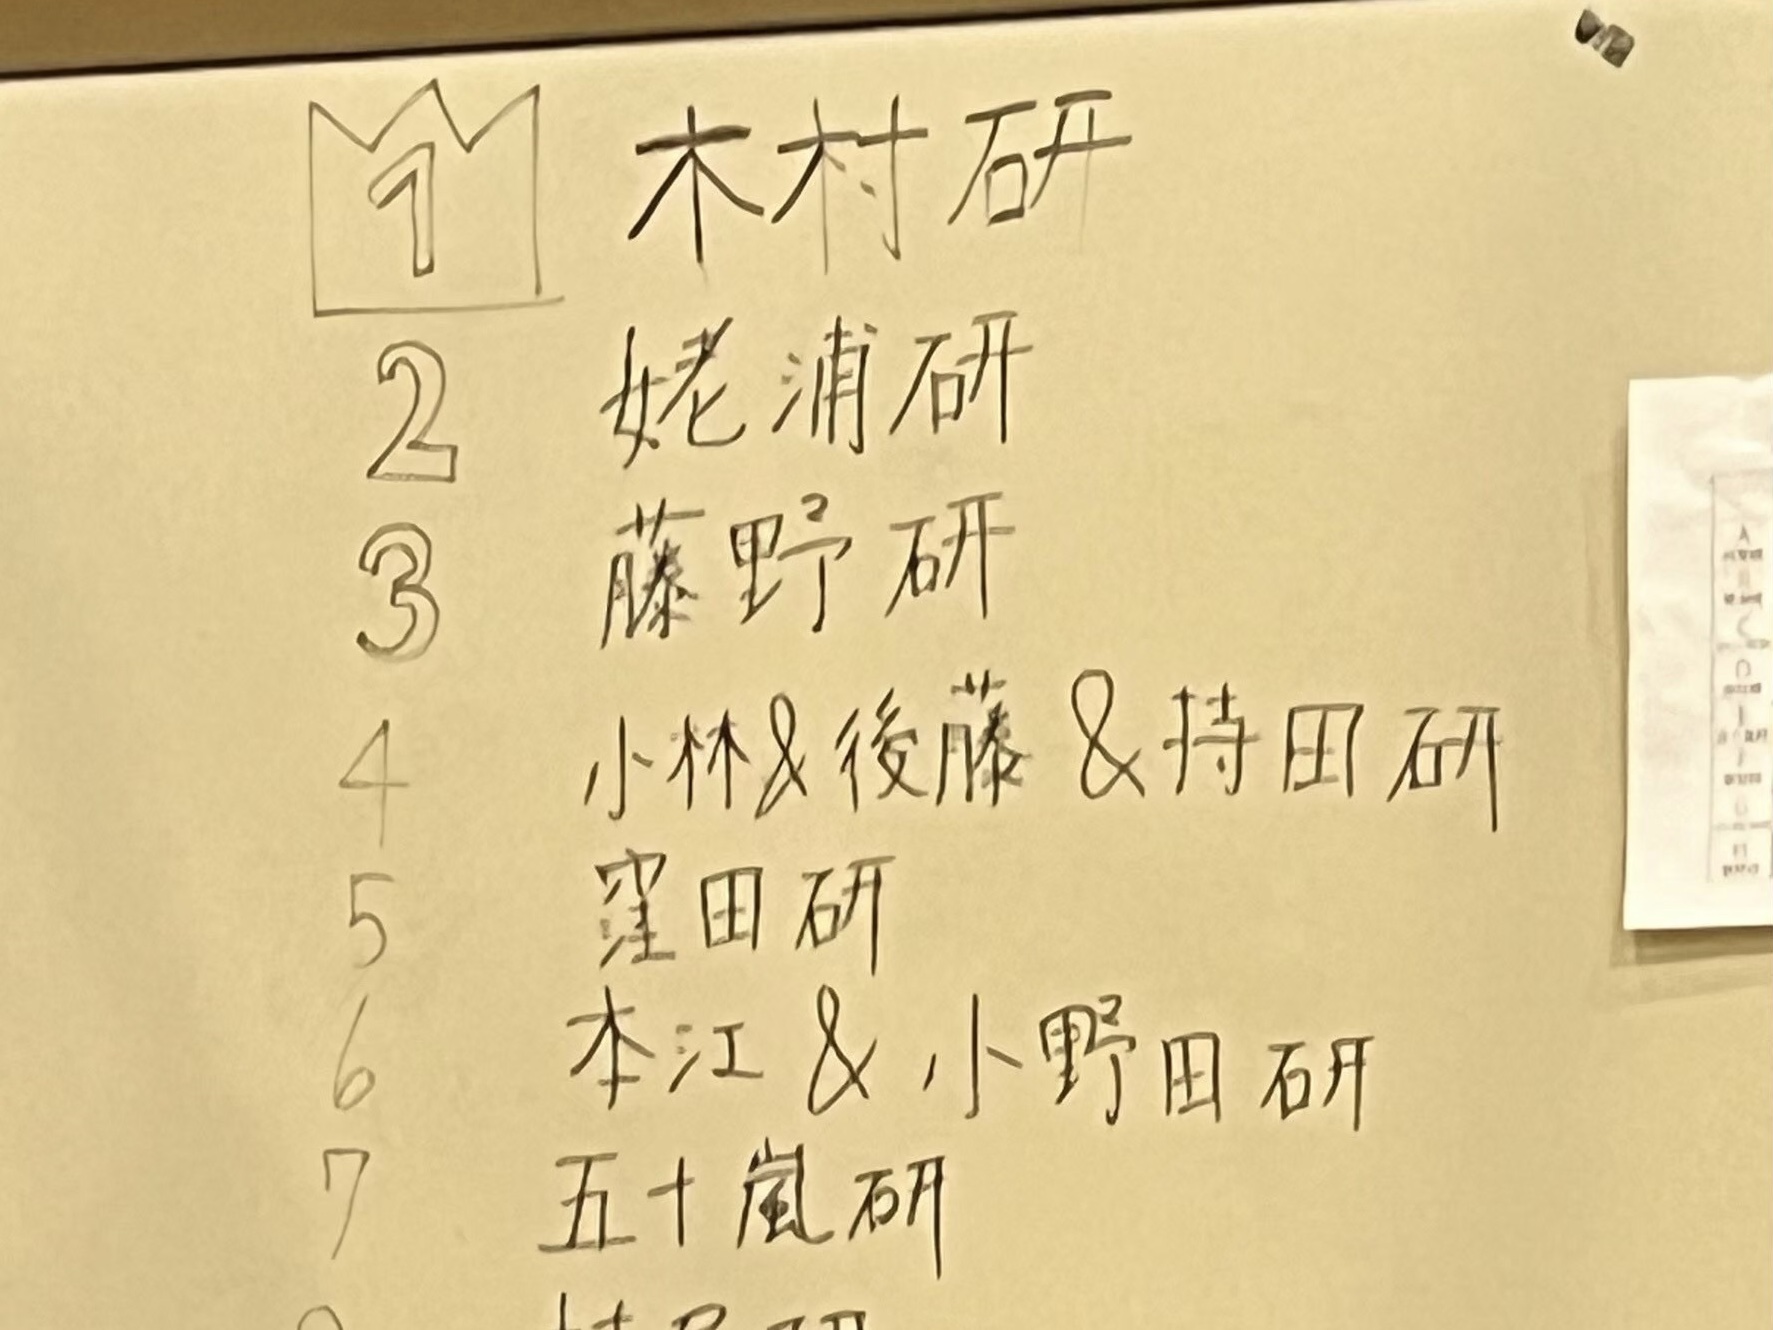 1 木村研
2 姥浦研
3 藤野研
4 小林&後藤&持田研
5 窪田研
6 本江&小野田研
7 五十嵐研